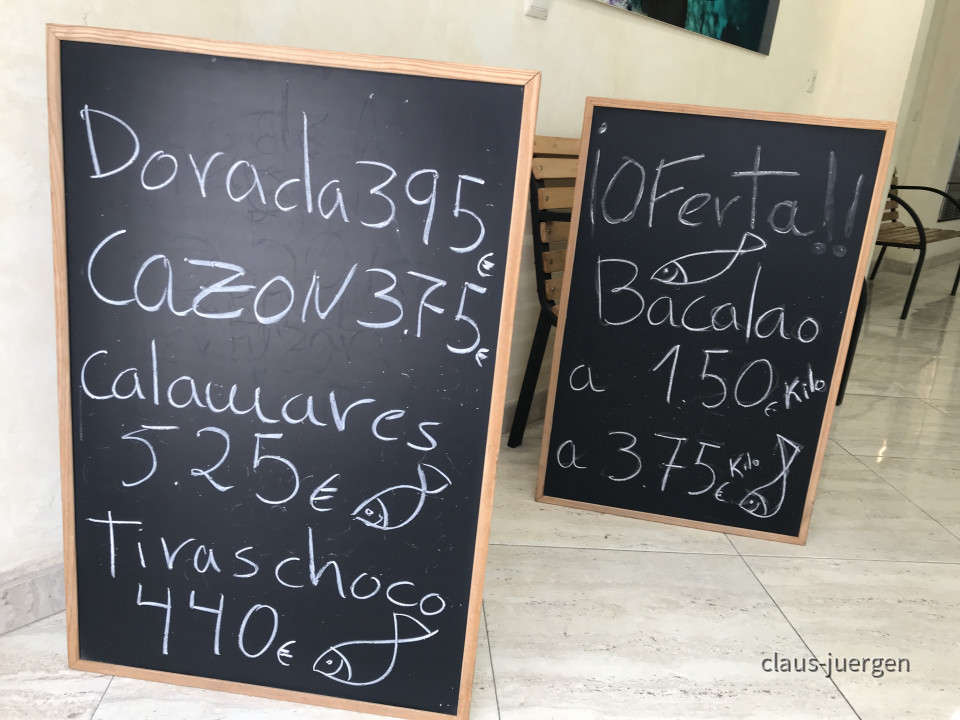 Dorada 395
€
CAZON 3.75
€
Calamares
5.25 €
Tiras choco
440 €
¡OFerta!!
Bacalao
a 1.50 € Kilo
a 3.75 € Kilo
claus-juergen